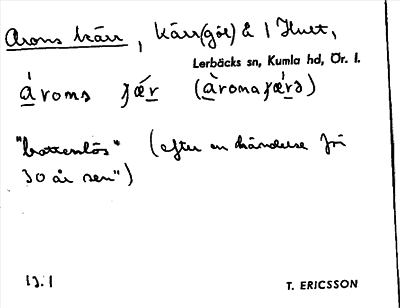 Arons kärr, kärr(göl) å 1 Hult,
Lerbäcks sn, Kumla hd, Ör. l.
"bottenlös" (efter en händelse för
30 år sen")
T. ERICSSON